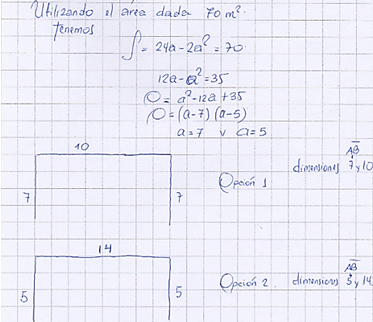 Utilizando el area dada 70 m².
Tenemos
S = 24a - 2a² = 70
12a - a² = 35
0 = a² - 12a + 35
0 = (a-7) (a-5)
a = 7 v a = 5
10
7
7
Opción 1
dimensiones 7 y 10
AB
14
5
5
Opción 2.
dimensiones 5 y 14
AB